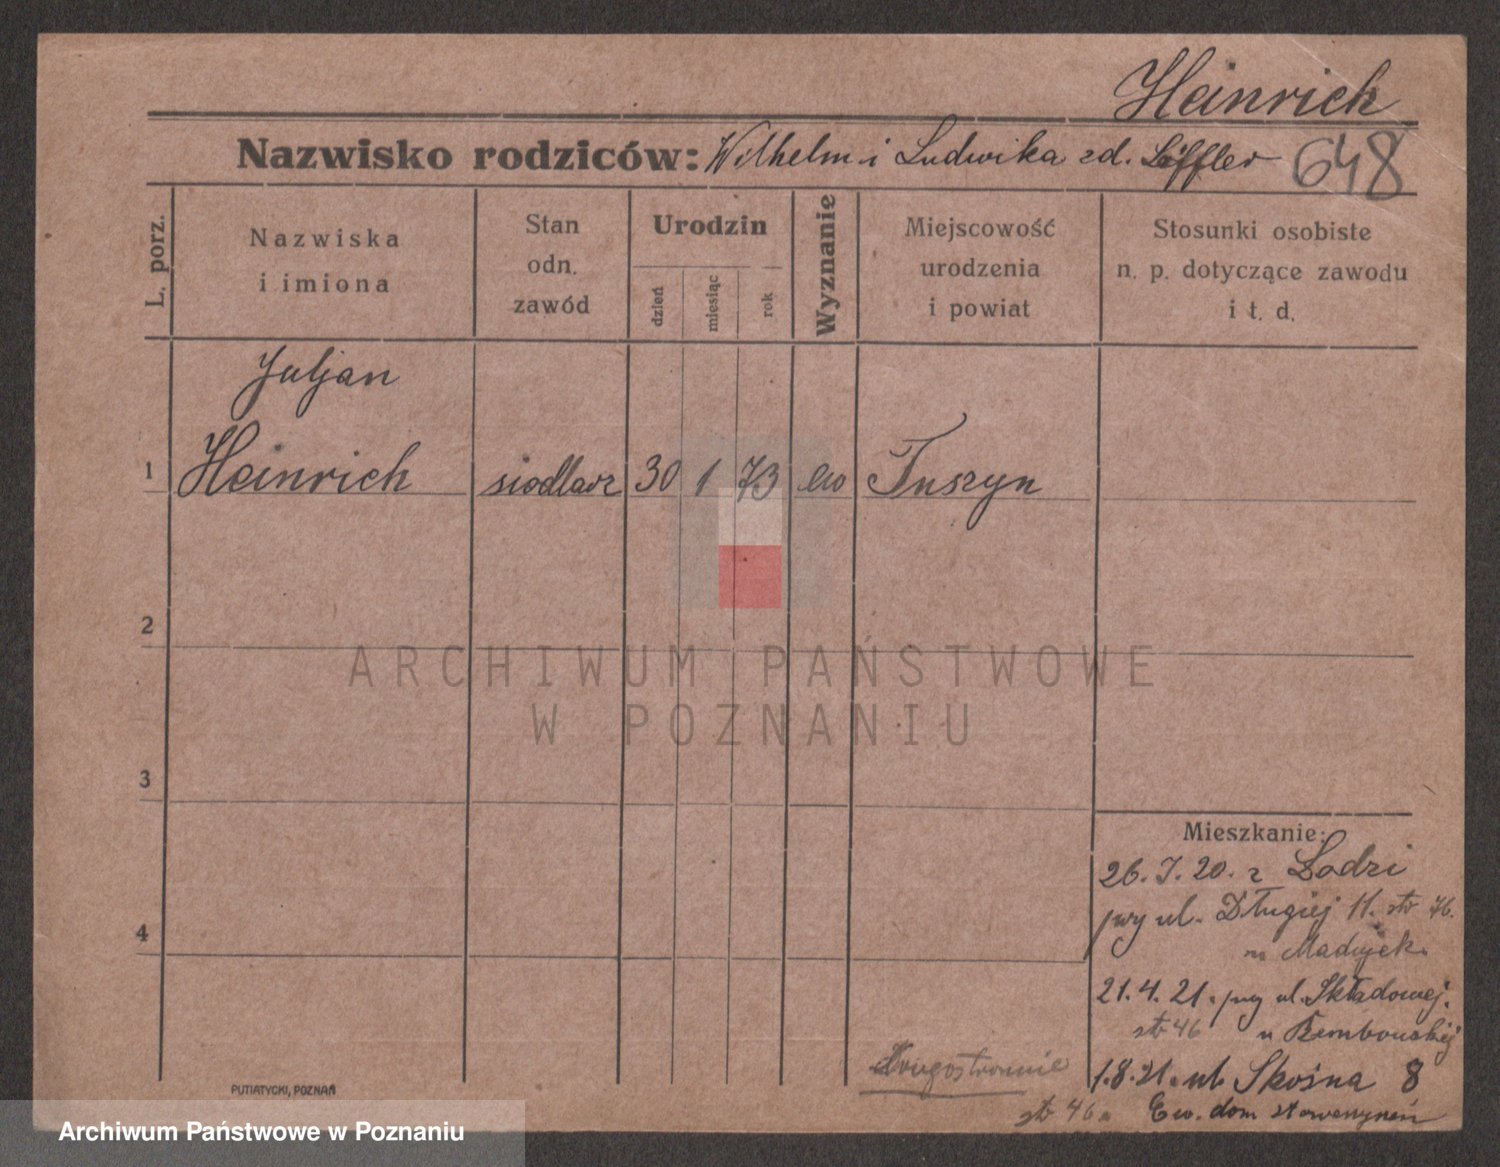 Heinrich
Nazwisko rodziców: Wilhelm i Ludwika zd. Löffler 648
L. porz.
Nazwiska
i imiona
Stan
odn.
zawód
Urodzin
dzień
miesiąc
rok
Wyznanie
Miejscowość
urodzenia
i powiat
Stosunki osobiste
n. p. dotyczące zawodu
i t. d.
Juljan
1 Heinrich siodlarz 30 1 73 ew Tuszyn
2
ARCHIWUM PAŃSTWOWE
W POZNANIU
3
Mieszkanie:
26.7.20. z Łodzi
4
przy ul. Długiej 11. str 76.
21.4.21. przy ul. Składowej.
str 46
1.8.21. ul Skośna 8
str 46. Ew. dom
PUTIATYCKI, POZNAŃ
Archiwum Państwowe w Poznaniu